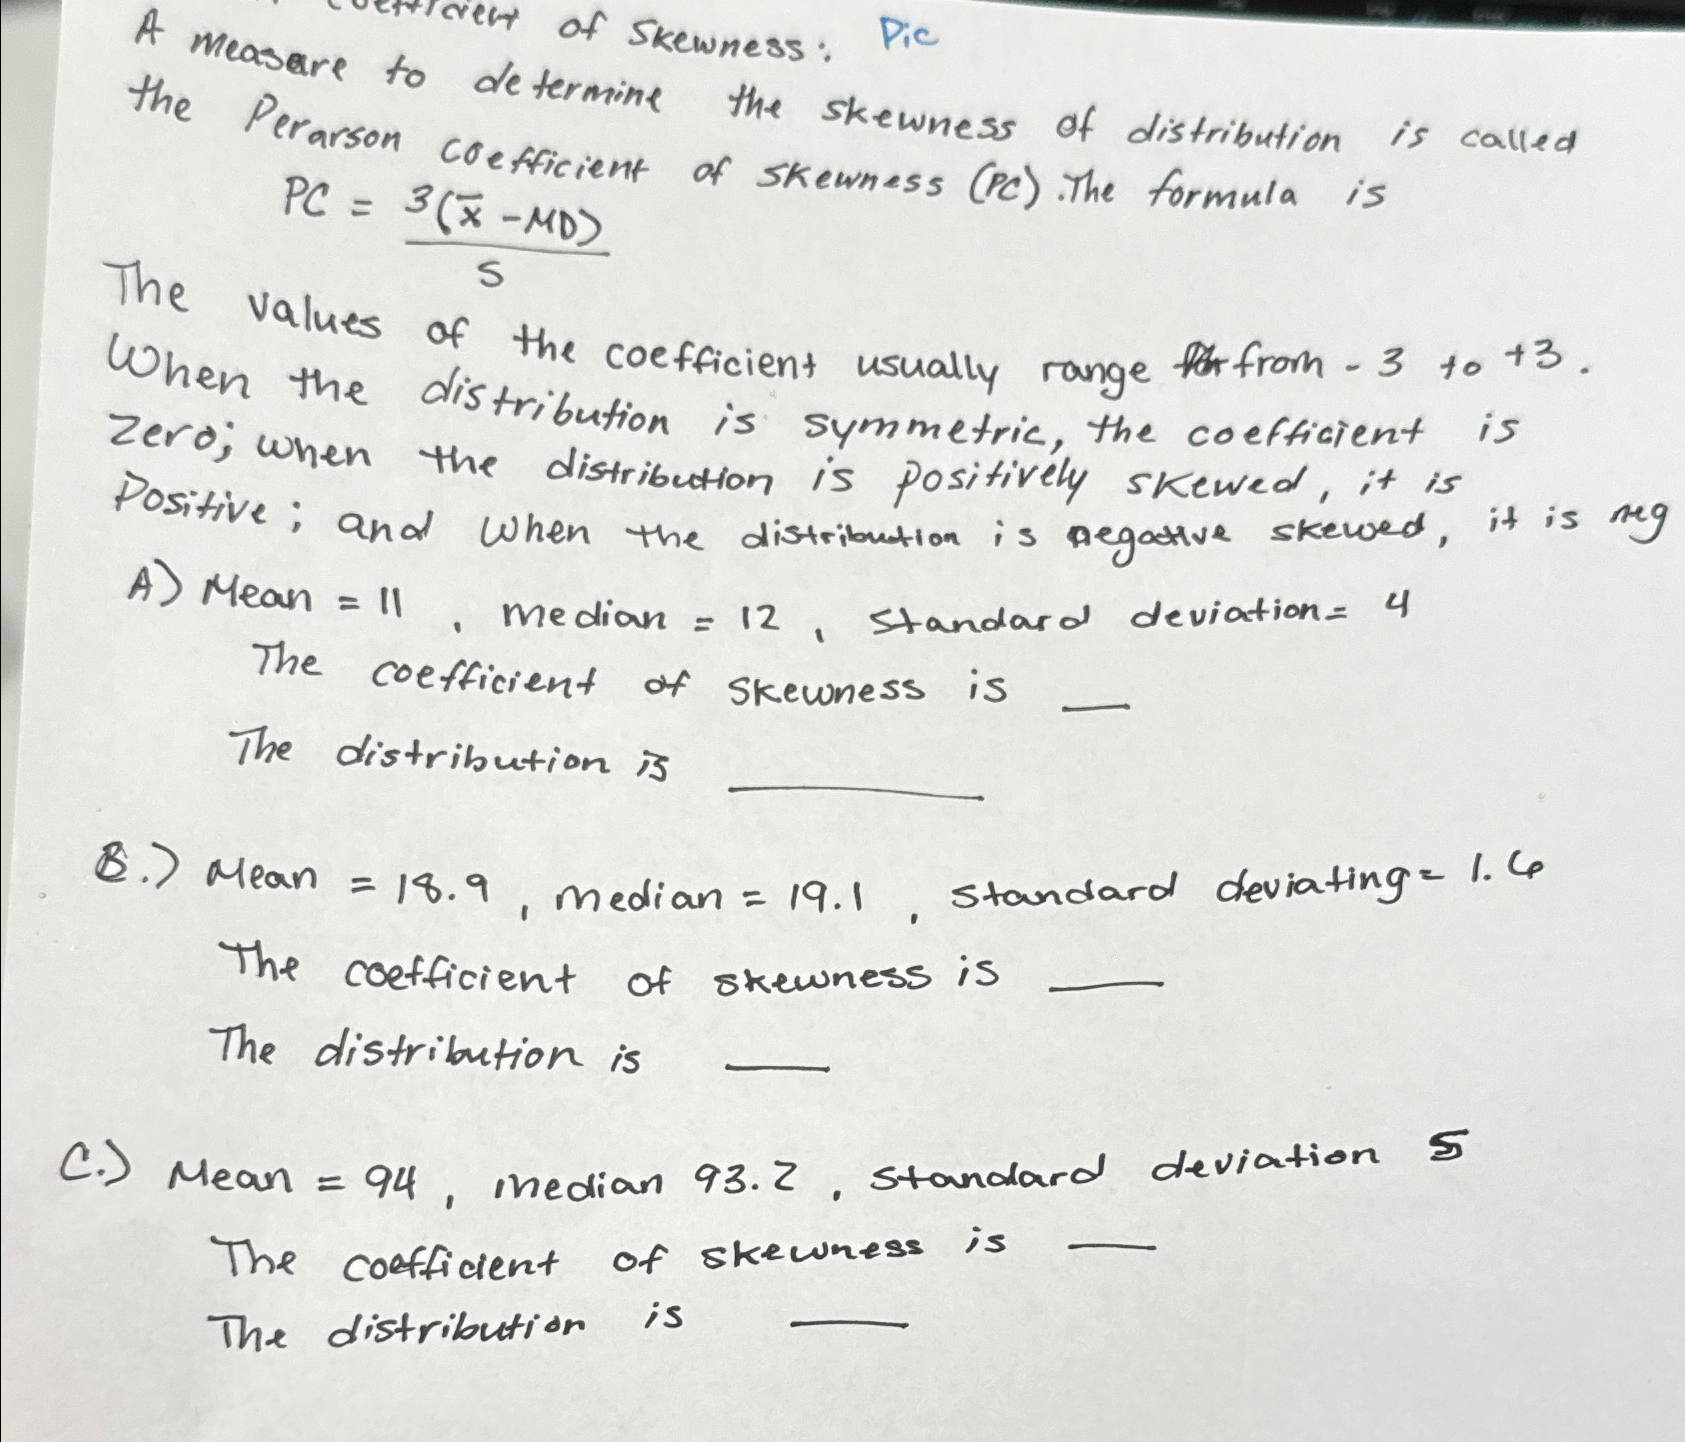 of Skewness: Pic
A measure to determine the skewness of distribution is called
the Perarson coefficient of skewness (PC). The formula is
PC = 3(x̄ - MD)
S
The values of the coefficient usually range from - 3 to +3.
When the distribution is symmetric, the coefficient is
zero; when the distribution is positively skewed, it is
Positive; and when the distribution is negative skewed, it is neg
A) Mean = 11, median = 12, standard deviation= 4
The coefficient of skewness is __
The distribution is ______
B.) Mean = 18.9, median = 19.1, standard deviating= 1.6
The coefficient of skewness is ___
The distribution is ___
C.) Mean = 94, median 93.2, standard deviation 5
The coefficient of skewness is __
The distribution is ___